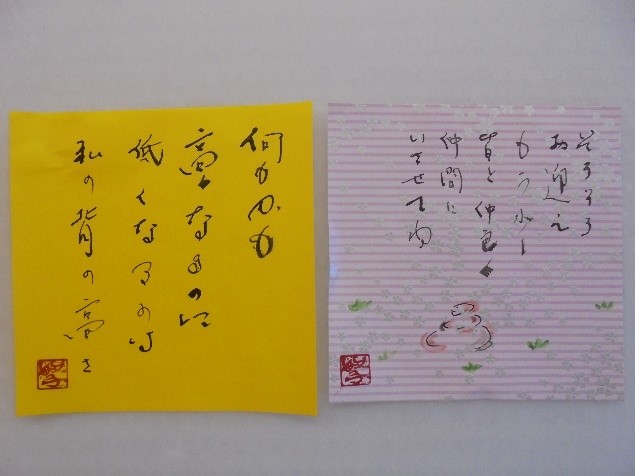 そろそろ
お迎え
もう少し
皆と仲良く
仲間に
いさせてね
何もかも
高くなるのに
低くなるのは
私の背の高さ